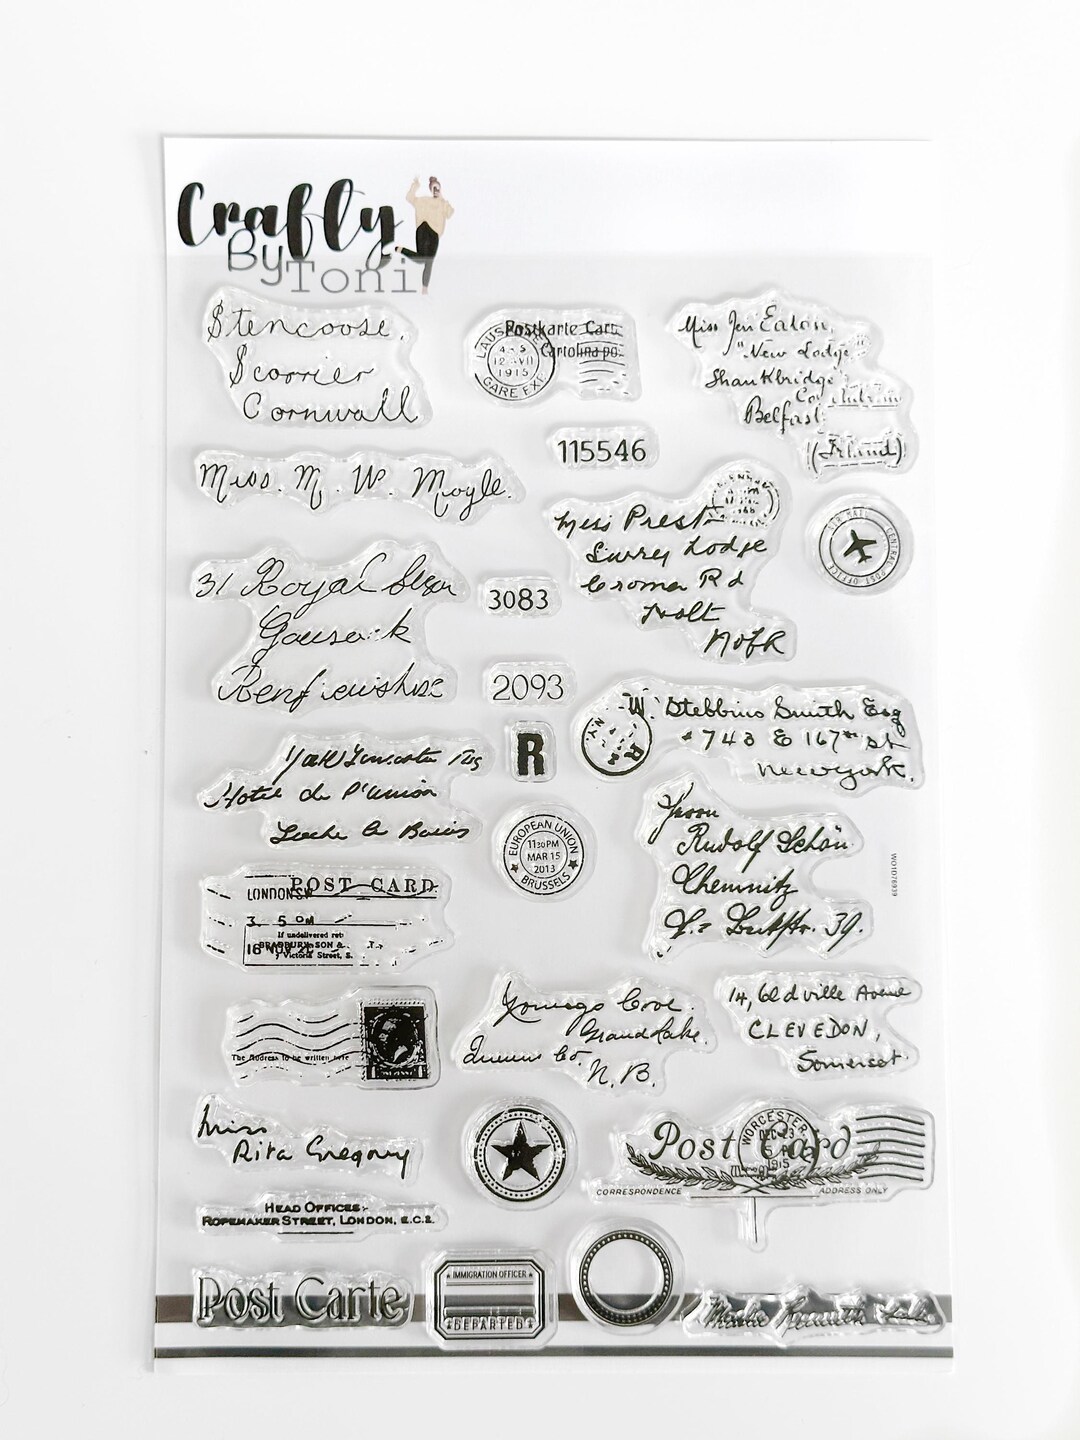 Crafly
By Toni
Stencoose,
Scorrier
Cornwall
Postkarte Cart
Cartolina po
LAUS
4-5
12.VII
1915
GARE EXP
Miss Jen Eaton,
"New Lodge"
Shankbridge
Co. Antrim
Belfast
(Ireland)
115546
Miss. M. W. Moyle.
Miss Prest
Surrey Lodge
Cromer Rd
Holt
Nofk
AIR MAIL CENTRAL POST OFFICE
31 Royal
Gourock
Renfrewshire
3083
2093
R
W. Stebbins Smith Esq
# 743 E 167th St
New York.
N.Y.
Hotel de l'Union
EUROPEAN UNION
11:30PM
MAR 15
2013
BRUSSELS
Herrn
Rudolf Schön
Chemnitz
39.
WO1076939
POST CARD
LONDON S.W
3. 5 PM
If undelivered ret
BRADBURY SON &
7 Victoria Street, S.
16 NOV
The Address to be written
1 1
Cove
Grand Lake.
Queens Co.
N.B.
14, Old ville Avenue
CLEVEDON,
Somerset.
Miss
Rita Gregory
Post Card
WORCESTER,
DEC 23
1915
CORRESPONDENCE
ADDRESS ONLY
HEAD OFFICES:-
ROPEMAKER STREET, LONDON, E.C.2.
Post Carte
IMMIGRATION OFFICER
DEPARTED
Kenneth